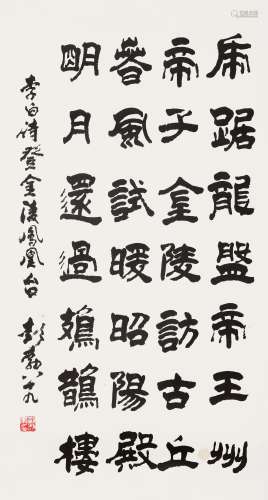 虎踞龍盤帝王州
帝子金陵訪古丘
春風試暖昭陽殿
明月還過鳷鵲樓
李白诗登金陵鳳凰台